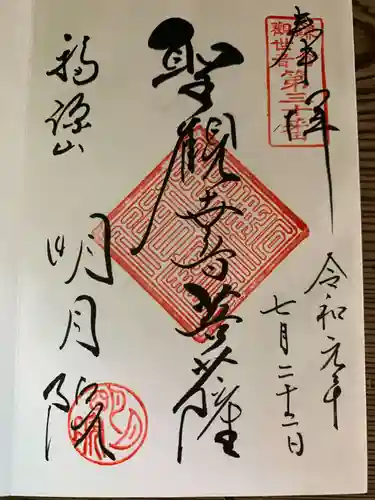 奉拝
観世音第三十番
令和元年
七月二十二日
聖観世音菩薩
福源山
明月院